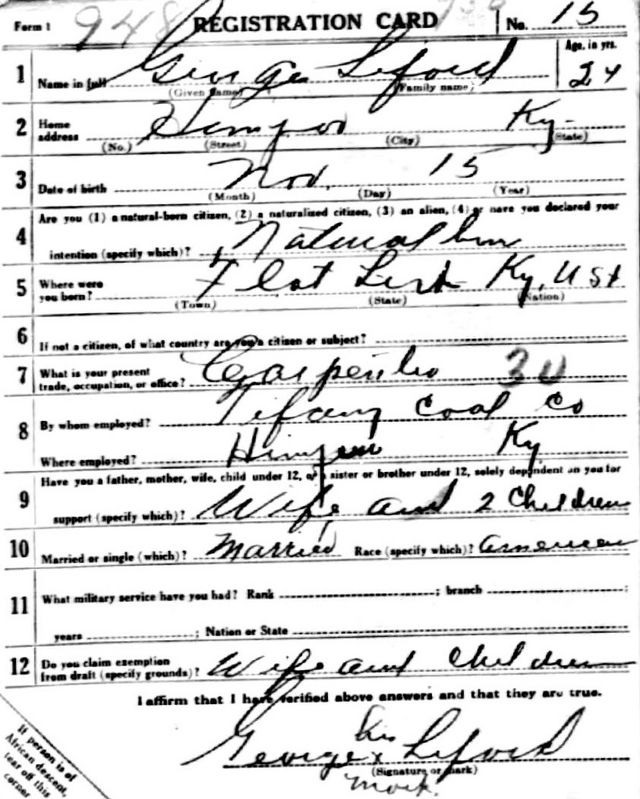 Form 1 948 REGISTRATION CARD No. 15
1 Name in full George Leford Age, in yrs. 24
(Given name) (Family name)
2 Home address Ky.
(No.) (Street) (City) (State)
3 Date of birth Nov. 15
(Month) (Day) (Year)
Are you (1) a natural-born citizen, (2) a naturalized citizen, (3) an alien, (4) or have you declared your
4 intention (specify which)? Natural born
5 Where were you born? Flat Lick Ky, USA
(Town) (State) (Nation)
6 If not a citizen, of what country are you a citizen or subject?
7 What is your present trade, occupation, or office? Carpenter 30
8 By whom employed? Tifany Coal Co
Where employed? Ky
Have you a father, mother, wife, child under 12, or a sister or brother under 12, solely dependent on you for
9 support (specify which)? Wife and 2 Children
10 Married or single (which)? Married Race (specify which)? American
11 What military service have you had? Rank ; branch ;
years ; Nation or State
12 Do you claim exemption from draft (specify grounds)? Wife and Children
I affirm that I have verified above answers and that they are true.
his
George x Leford
(Signature or mark)
mark
If person is of
African descent,
tear off this
corner